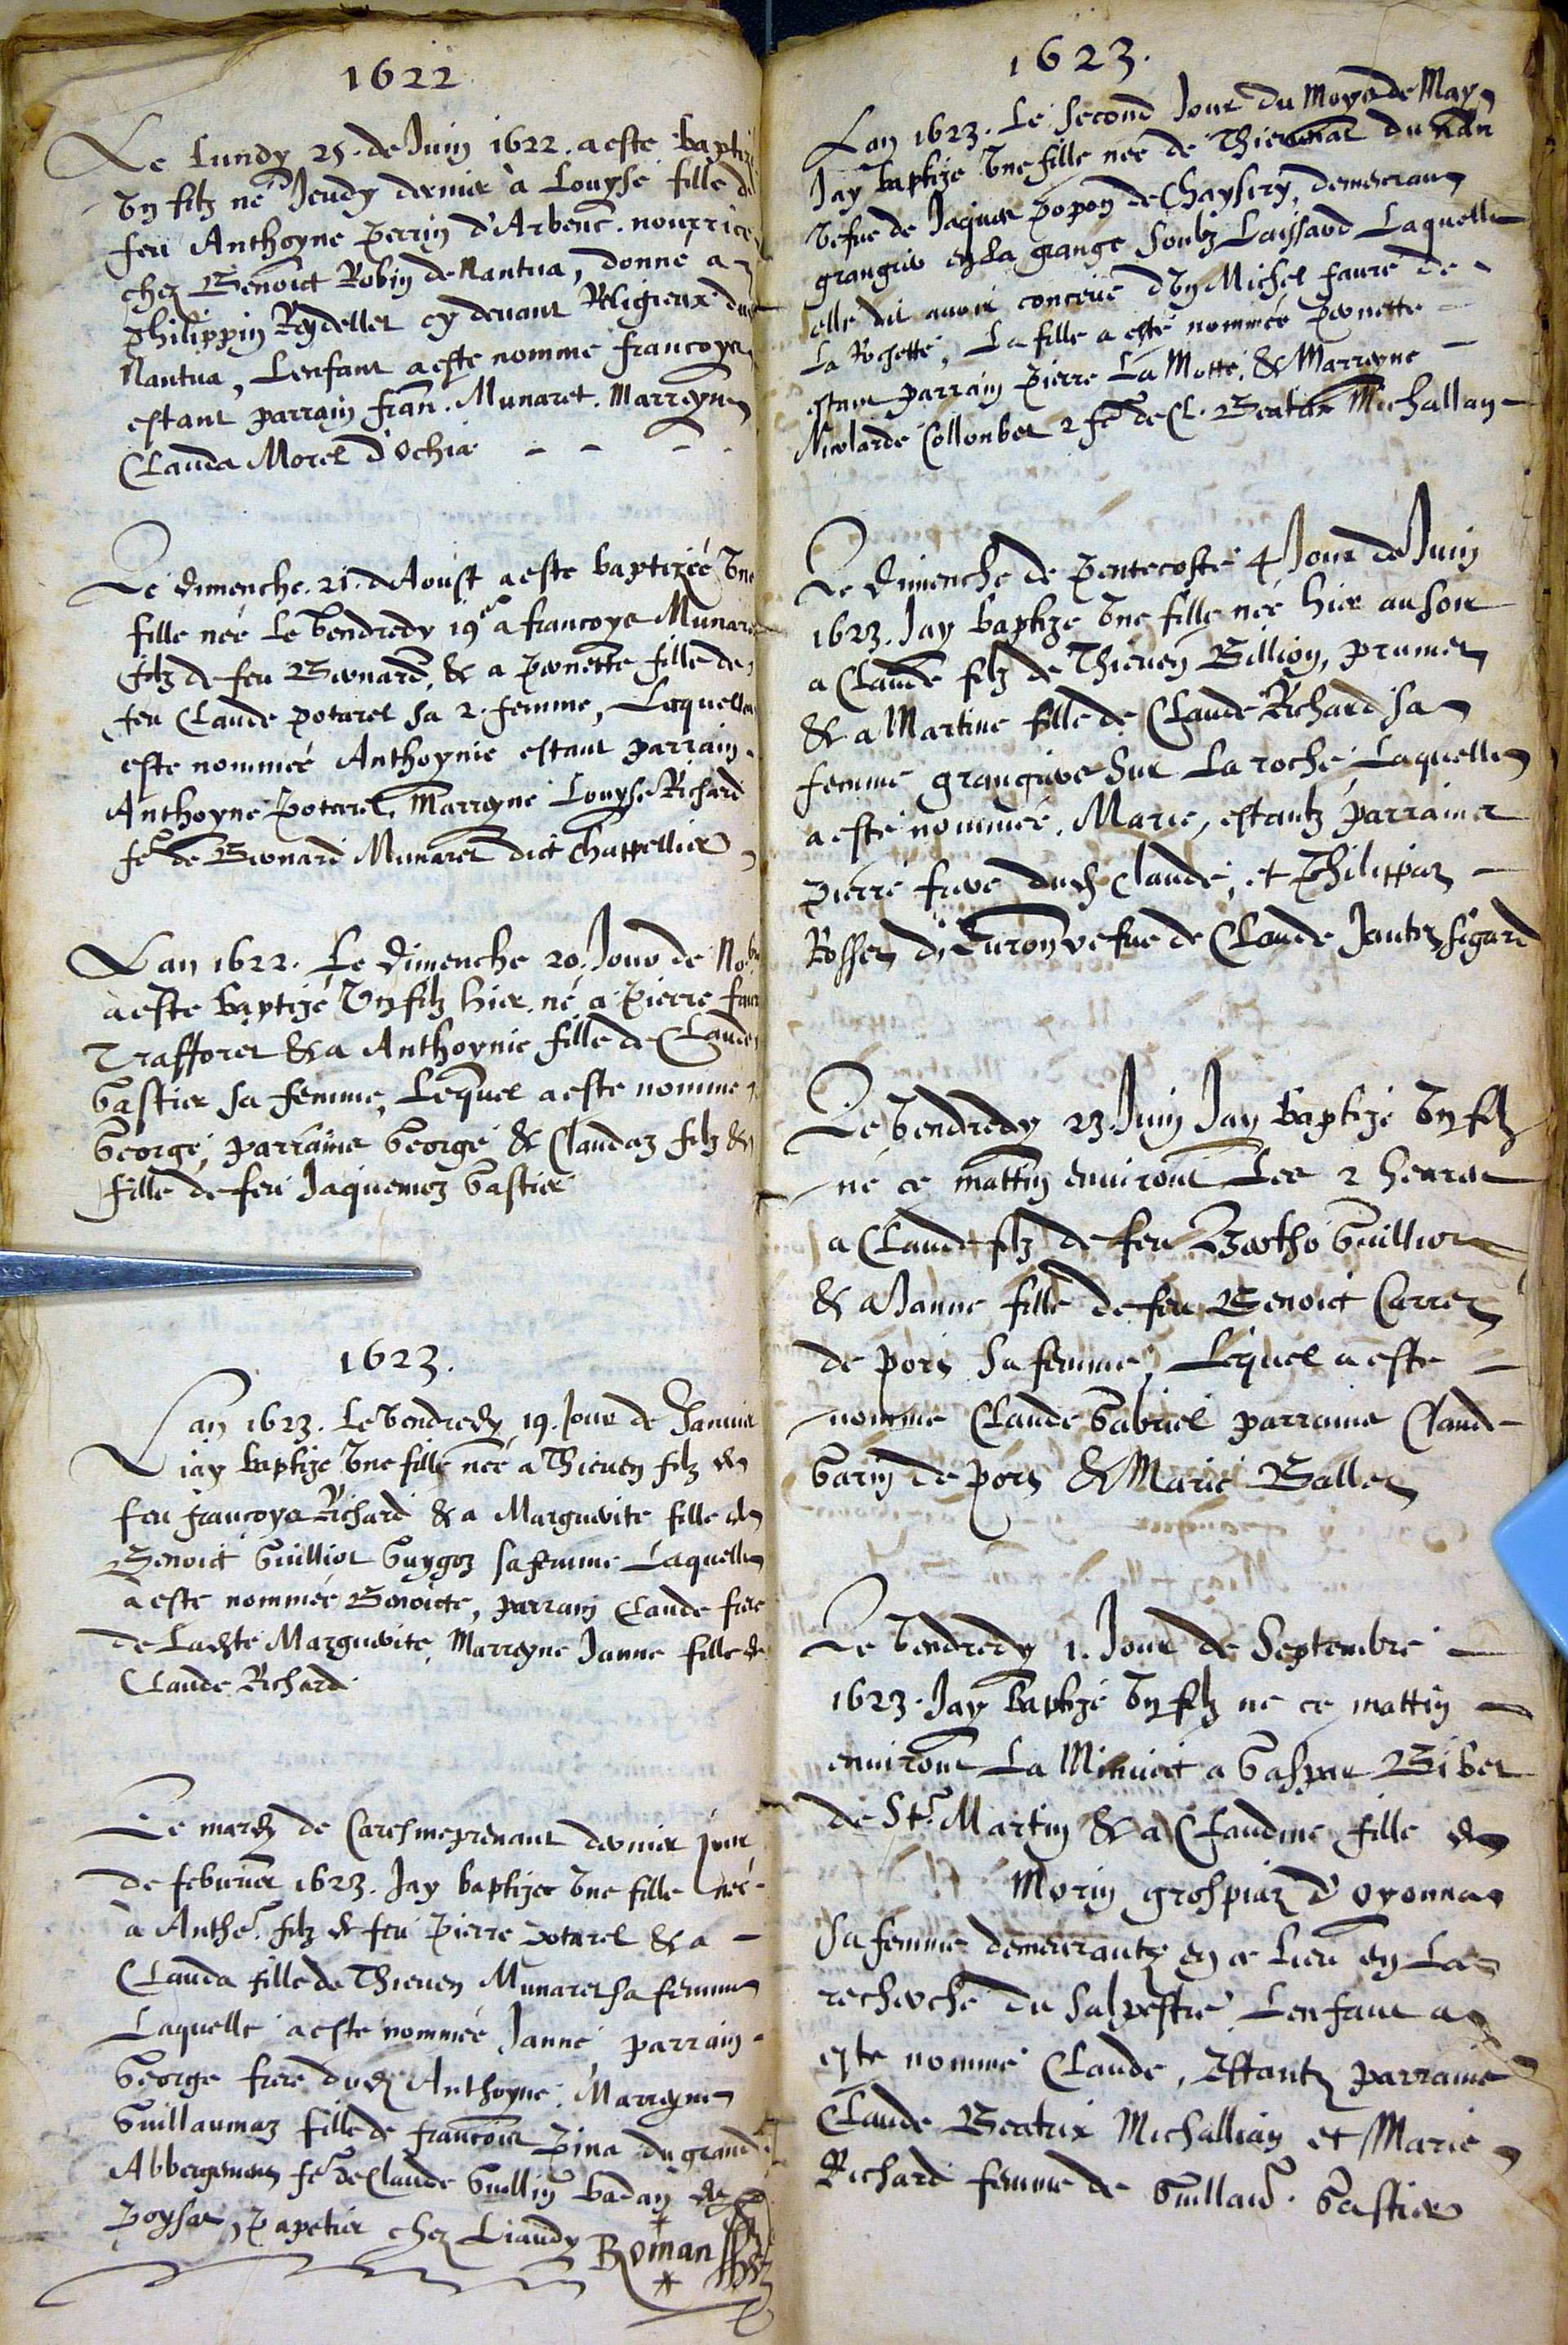 1622
Le Lundy 25. de Juin 1622. a este baptizé
Un filz né Jeudy dernier à Louyse fille de
feu Anthoyne Perrin d'Arbenc. nourrice
chez Benoict Robin de Nantua, donné a
Philippin Reydellet cy devant Religieux
Nantua, Lenfant a este nommé francoys
estant parrain fran. Munaret. Marreyne
Clauda Morel d'Ochia
Le dimenche. 21. d'Aoust a este baptizée Une
fille née le Vendredy 19e a francoys Munaret
filz de feu Bernard, & a Pernette fille de
feu Claude potarel sa 2. femme, Laquelle
este nommée Anthoynie estant parrain
Anthoyne Potarel, Marreyne Louyse Richard
fe de Bernard Munaret dict Chappellier
Lan 1622. Le Dimenche 20. Jour de Nobre
a este baptizé Un filz hier né a Pierre
Trafforet & a Anthoynie fille de Claude
Gastier sa femme, Lequel a este nommé
George, parrains George & Claudaz filz &
fille de feu Jaquemoz Gastier
1623.
Lan 1623. Le Vendredy 19. Jour de Janvier
jay baptizé Une fille née a Thieven filz de
feu francoys Richard & a Marguerite fille de
Benoict Guilliot Guygoz sa femme Laquelle
a este nommée Benoicte, parrain Claude frere
de Ladte Marguerite, Marreyne Janne fille de
Claude Richard
Le mardy de Caresmeprenant dernier jour
de febvrier 1623. Jay baptizee Une fille née
à Anthe. filz de feu Pierre potarel & a
Clauda fille de Thieven Munaret sa femme
Laquelle a este nommée Janne parrain
George frere dud Anthoyne. Marreyne
Guillaumaz fille de francois Pina du grand
Abbergement fe de Claude Guillin badan de
Poysat, Papetier chez Liaudy Roman
1623.
Lan 1623. Le second Jour du Moys de May
Jay baptizé Une fille née de Thievenat du Nan
Vefve de Jaques Popon de Chaysery, demeurant
grangiers en la grange soubz Laissard Laquelle
elle dit avoir conceue d'Un Michel faure de
La Rochette, La fille a esté nommée Pernette
estant parrain Pierre La Motte, & Marreyne
Nicolarde Collonbet 2 fe de Cl. Beatrix Michallian
Le dimenche de Pentecoste 4 Jour de Juin
1623. Jay baptize Une fille née hier au soir
a Claude filz de Thieven Billion, prumet
& a Martine fille de Claude Richard sa
femme grangiere sur La roche, Laquelle
a esté nommée, Marie, estantz parrains
Pierre frere dud Claude, et Philippaz
Rosset di Turon vefve de Claude Jantet figard
Le Vendredy 23. Juin Jay baptizé Un filz
né ce mattin environt Les 2 heures
a Claude filz de feu Bertho Guilliot
& a Janne fille de feu Benoict Carrer
de pors sa femme, Lequel a este
nommé Claude Gabriel parrains Claude
Garin de pors & Marie Ballet
Le Vendredy 1. Jour de Septembre
1623. Jay baptizé Un filz né ce mattin
environt La Minuict a Gaspar Bibet
de St. Martin & a Claudine fille de
Morin grospiaz d'oyonnas
sa femme demeurantz en ce Lieu en La
recherche du salpestre Lenfant a
este nommé Claude, Estantz parrains
Claude Beatrix Michallian et Marie
Richard femme de Guillau. Gastier